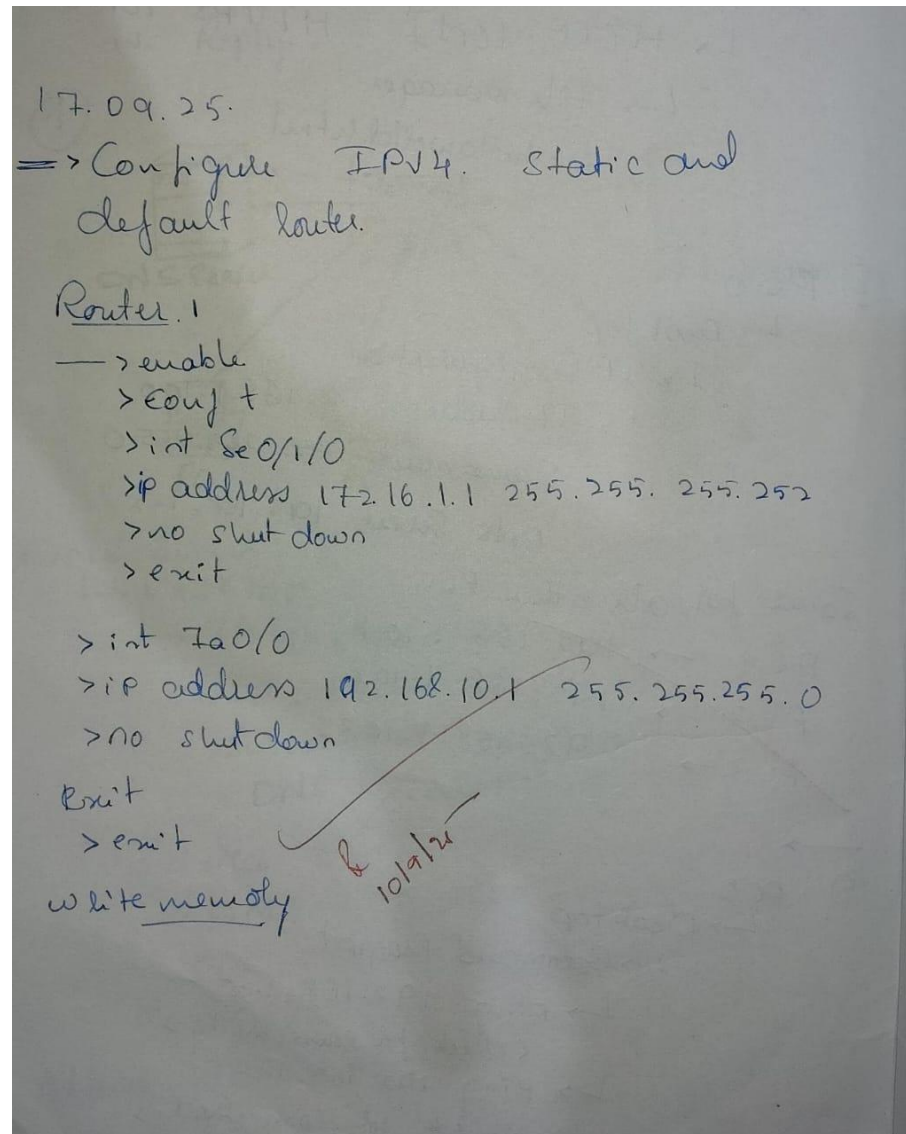 17.09.25.
=> Configure IPV4. Static and
default Router.
Router.1
—> enable
> conf t
> int Se0/1/0
>ip address 172.16.1.1 255.255.255.252
>no shut down
> exit
> int Fa0/0
>ip address 192.168.10.1 255.255.255.0
>no shutdown
Exit
> exit
write memory
10/9/25